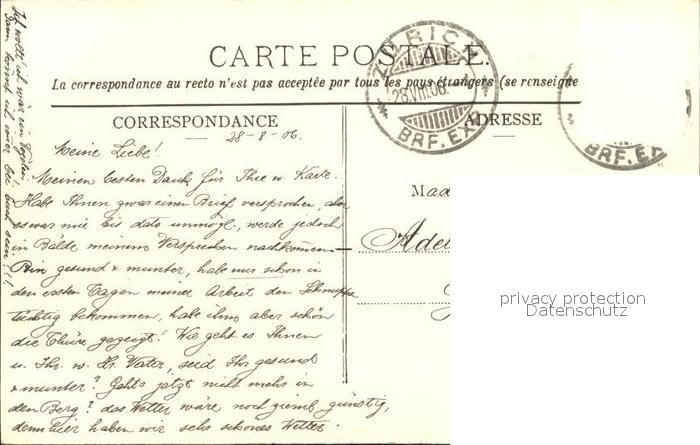 CARTE POSTALE.
La correspondance au recto n'est pas acceptée par tous les pays étrangers (se renseigne
CORRESPONDANCE
ADRESSE
ZÜRICH
28.VIII.06.
BRF. EXP.
BRF. EX
28-8-06.
Meine Liebe!
Meinen besten Dank für Ihre w. Karte.
Habe Ihnen zwar einen Brief versprochen, aber
es war mir bis dato unmögl., werde jedoch
in Bälde meinem Versprechen nachkommen
Bin gesund & munter, habe nur schon in
den ersten Tagen meiner Arbeit den Schnuppe
tüchtig bekommen, habe ihm aber schön
die Thüre gezeigt! Wie geht es Ihnen
u. Ihr. w. Hr. Vater, seid Ihr gesund
& munter? Gehts jetzt nicht mehr in
den Berg? das Wetter wäre noch ziemlich günstig,
denn hier haben wir sehr schönes Wetter.
Ich wollt' ich wär ein Vöglein
Dann könnt ich immer bei Euch sein!!!
Mad
Adel
privacy protection
Datenschutz